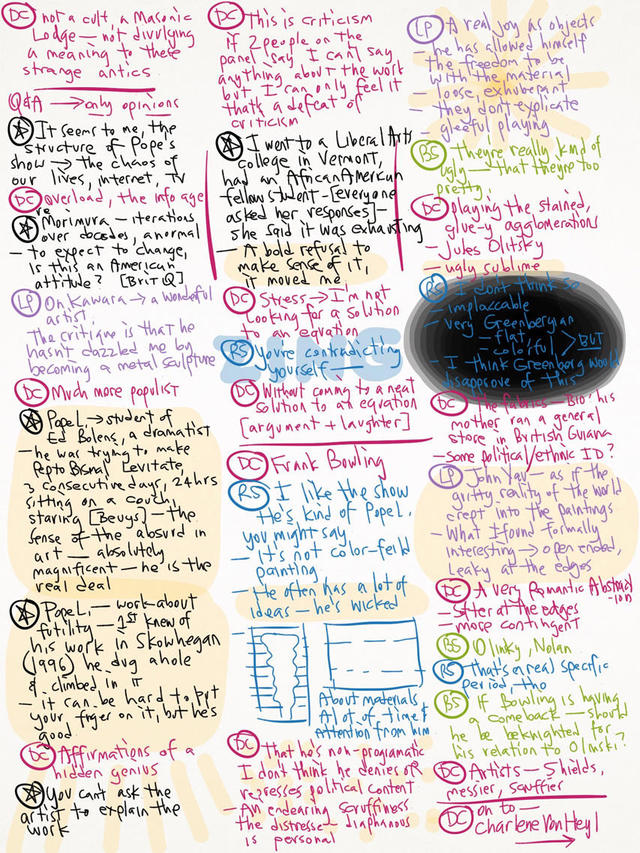 DC not a cult, a Masonic
Lodge — not divulging
a meaning to these
strange antics
Q&A → only opinions
It seems to me, the
structure of Pope's
show → the chaos of
our lives, internet, TV
DC overload, the info age
re
Morimura — iterations
over decades, a normal
— to expect to change,
Is this an American
attitude? [Brit Q]
LP On Kawara → a wonderful
artist
The critique is that he
hasn't dazzled me by
becoming a metal sculpture
DC Much more populist
Pope L. → student of
Ed Bolens, a dramatist
— he was trying to make
Pepto Bismal Levitate,
3 consecutive days, 24 hrs
sitting on a couch,
staring [Beuys] — the
sense of the absurd in
art — absolutely
magnificent — he is the
real deal
Pope L. — work about
futility — 1st knew of
his work in Skowhegan
(1996) he dug a hole
& climbed in it
— it can be hard to put
your finger on it, but he's
good
DC Affirmations of a
hidden genius
You can't ask the
artist to explain the
work
DC This is criticism
If 2 people on the
panel say I can't say
anything about the work
but I can only feel it
that's a defeat of
criticism
I went to a Liberal Arts
college in Vermont,
had an African American
fellow student — [everyone
asked her responses] —
she said it was exhausting
— A bold refusal to
make sense of it,
it moved me
DC Stress → I'm not
looking for a solution
to an equation
ZING
RS You're contradicting
yourself —
DC Without coming to a neat
solution to an equation
[argument + laughter]
DC Frank Bowling
RS I like the show
He's kind of Pope L.
you might say
— it's not color-field
painting
— He often has a lot of
ideas — he's wicked
About materials
A lot of time &
Attention from him
DC That he's non-programatic
I don't think he denies or
represses political content
— An endearing scruffiness
the distressed diaphanous
is personal
LP A real joy as objects
— he has allowed himself
the freedom to be
with the material
— loose, exhuberant
— they don't explicate
— gleeful playing
BS They're really kind of
ugly — that they're too
pretty
DC playing the stained,
glue-y agglomerations
— Jules Olitsky
— ugly sublime
RS I don't think so
— implaccable
— very Greenbergian
— flat
— colorful > BUT
— I think Greenberg would
disapprove of this
DC The fabrics — Bio: his
mother ran a general
store in British Guiana
— Some political/ethnic ID?
LP John Yau — as if the
gritty reality of the world
crept into the paintings
— What I found formally
interesting → open ended,
Leaky at the edges
DC A very Romantic Abstract
-ion
— Softer at the edges
— more contingent
BS Olinky, Nolan
RS That's a real specific
period, tho
BS If Bowling is having
a comeback — should
he be beknighted for
his relation to Olinski?
DC Artists — Shields,
messier, scruffier
DC on to —
Charlene Von Heyl